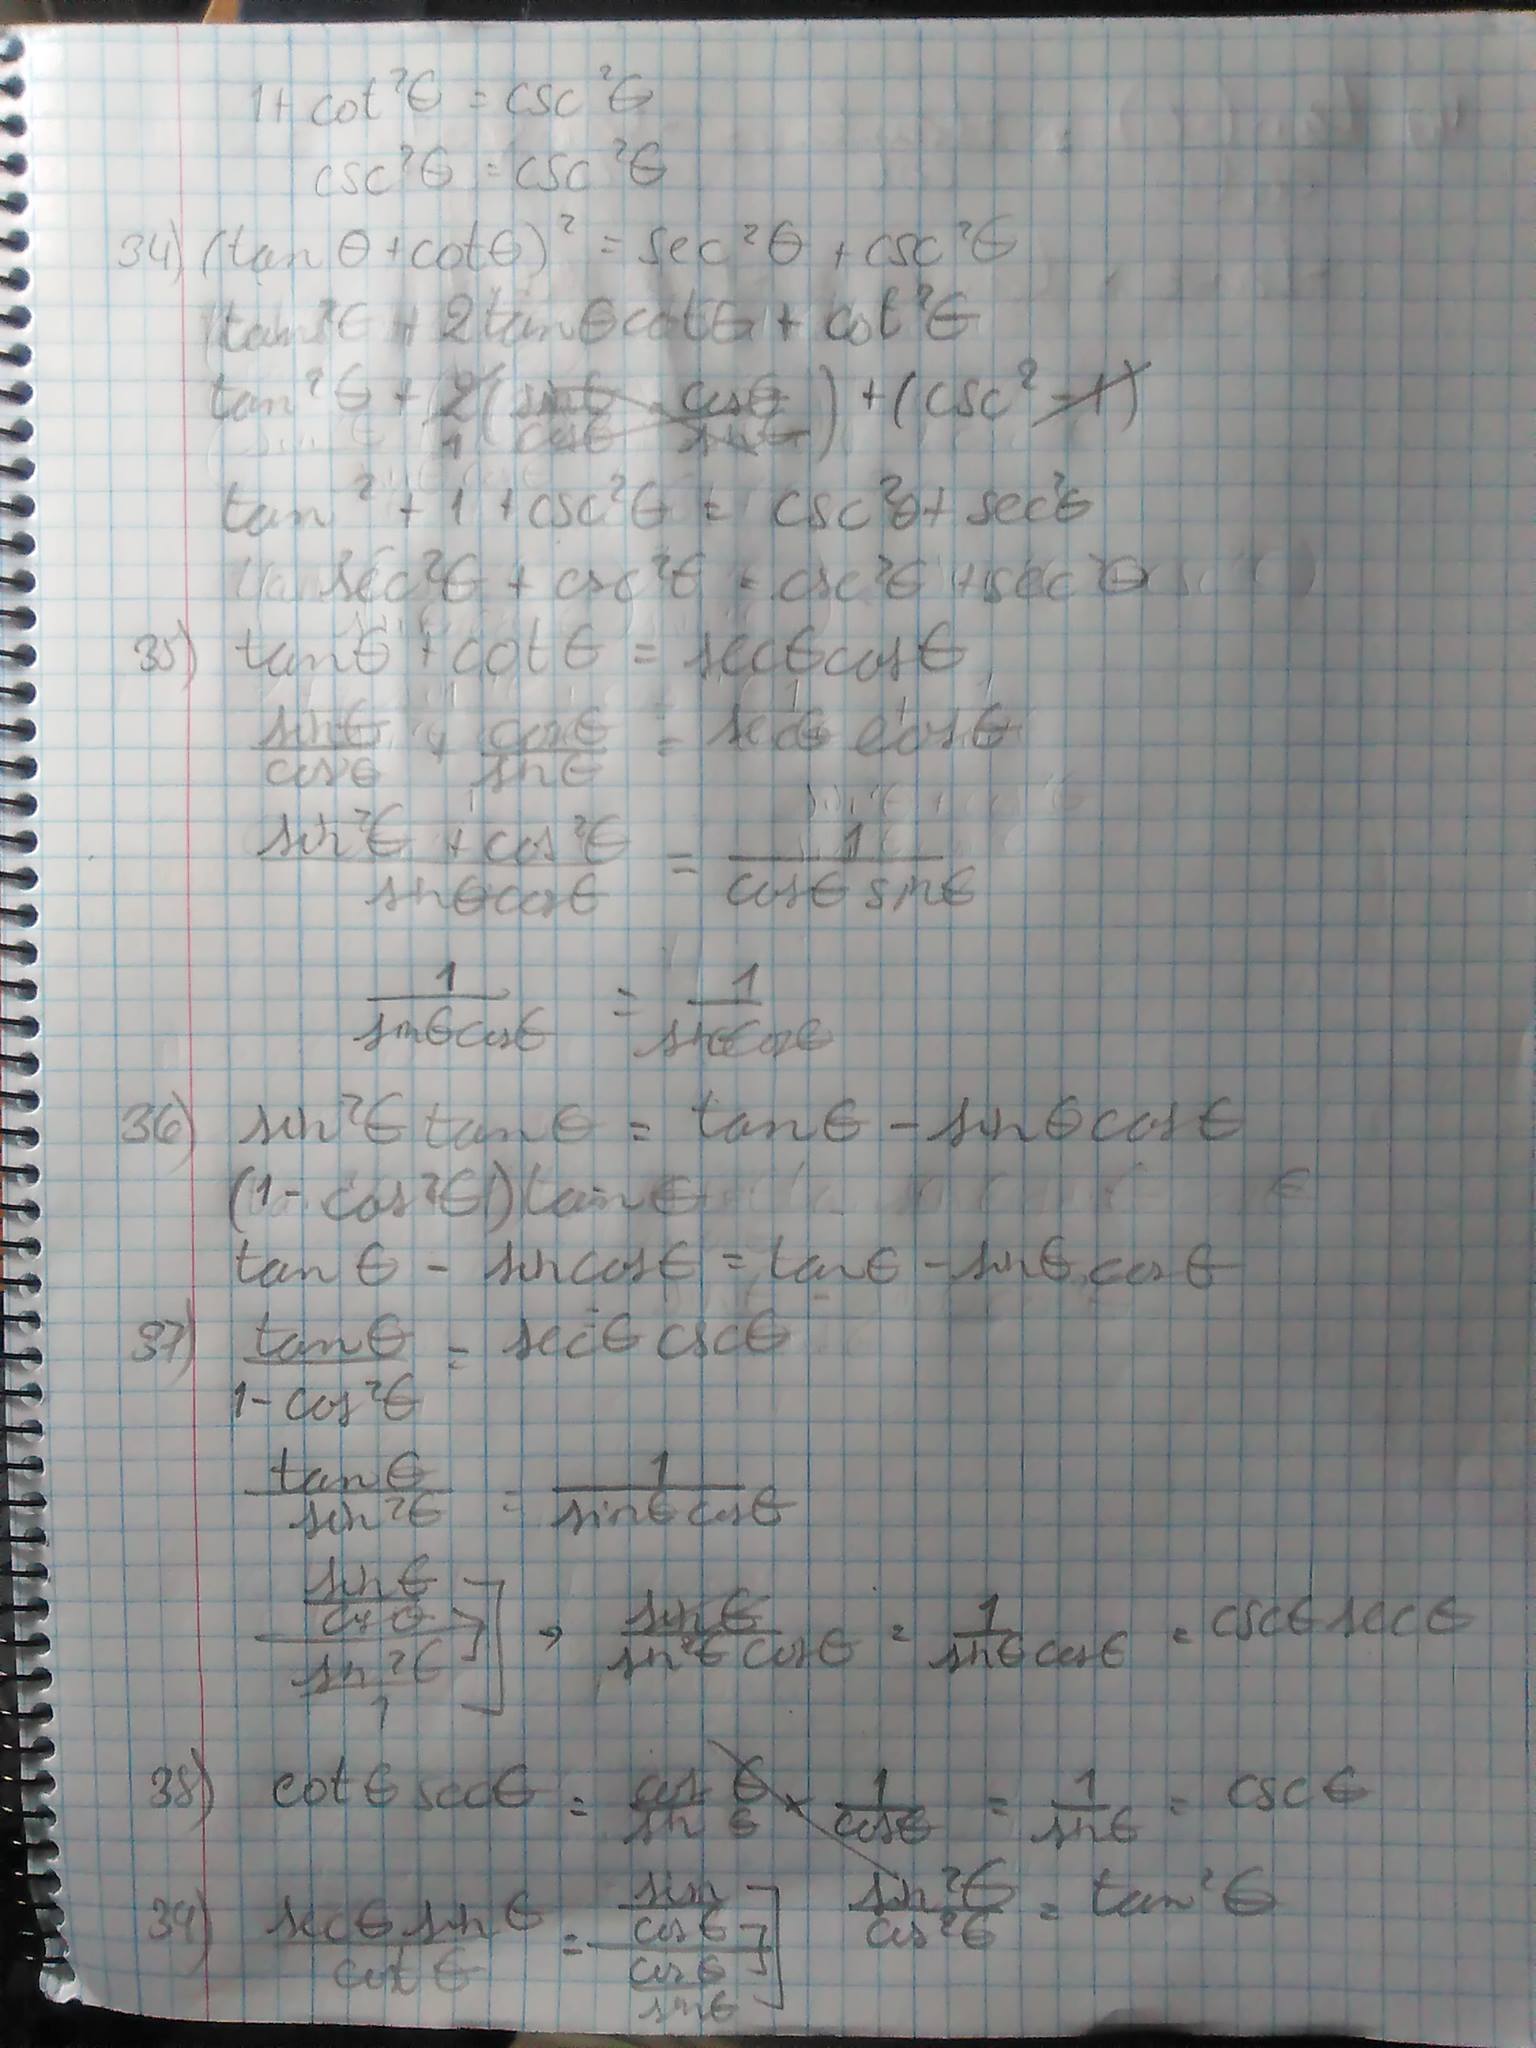 1 + cot²θ = csc²θ
csc²θ = csc²θ
34) (tan θ + cotθ)² = sec²θ + csc²θ
tan²θ + 2tanθcotθ + cot²θ
tan²θ + 2/1 (sinθ/cosθ · cosθ/sinθ) + (csc² - 1)
tan² + 1 + csc²θ = csc²θ + sec²θ
sec²θ + csc²θ = csc²θ + sec²θ
35) tanθ + cotθ = secθcosθ
sinθ/cosθ + cosθ/sinθ = secθ cosθ
sin²θ + cos²θ/sinθcosθ = 1/cosθ sinθ
1/sinθcosθ = 1/sinθcosθ
36) sin²θ tanθ = tanθ - sinθcosθ
(1 - cos²θ) tanθ
tanθ - sincosθ = tanθ - sinθ cosθ
37) tanθ/1 - cos²θ = secθ cscθ
tanθ/sin²θ = 1/sinθcosθ
sinθ/cosθ / sin²θ/1 → sinθ/sin²θcosθ = 1/sinθcosθ = cscθ secθ
38) cotθ secθ = cosθ/sinθ × 1/cosθ = 1/sinθ = cscθ
39) secθ sinθ/cotθ = sin/cosθ / cosθ/sinθ sin²θ/cos²θ = tan²θ